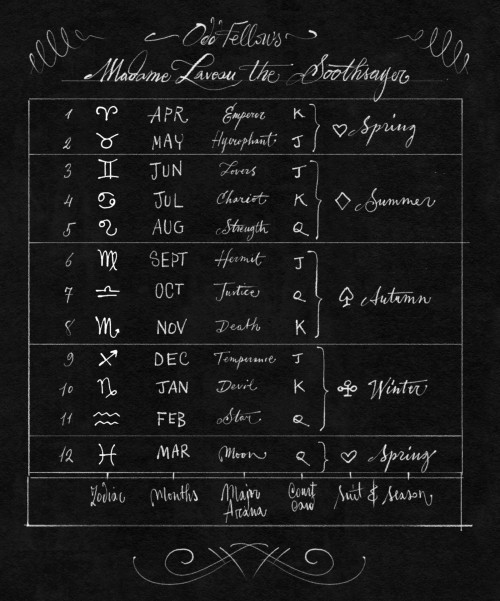 Odd Fellows
Madame Laveau the Soothsayer
1 ♈ APR Emperor K
2 ♉ MAY Hyerophant J
♡ Spring
3 ♊ JUN Lovers J
4 ♋ JUL Chariot K
5 ♌ AUG Strength Q
♢ Summer
6 ♍ SEPT Hermit J
7 ♎ OCT Justice Q
8 ♏ NOV Death K
♤ Autumn
9 ♐ DEC Temperance J
10 ♑ JAN Devil K
11 ♒ FEB Star Q
♧ Winter
12 ♓ MAR Moon Q
♡ Spring
Zodiac Months Major Arcana Court Card Suit & Season